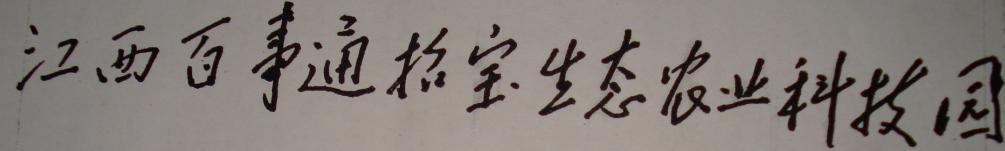 江西百事通招宝生态农业科技园